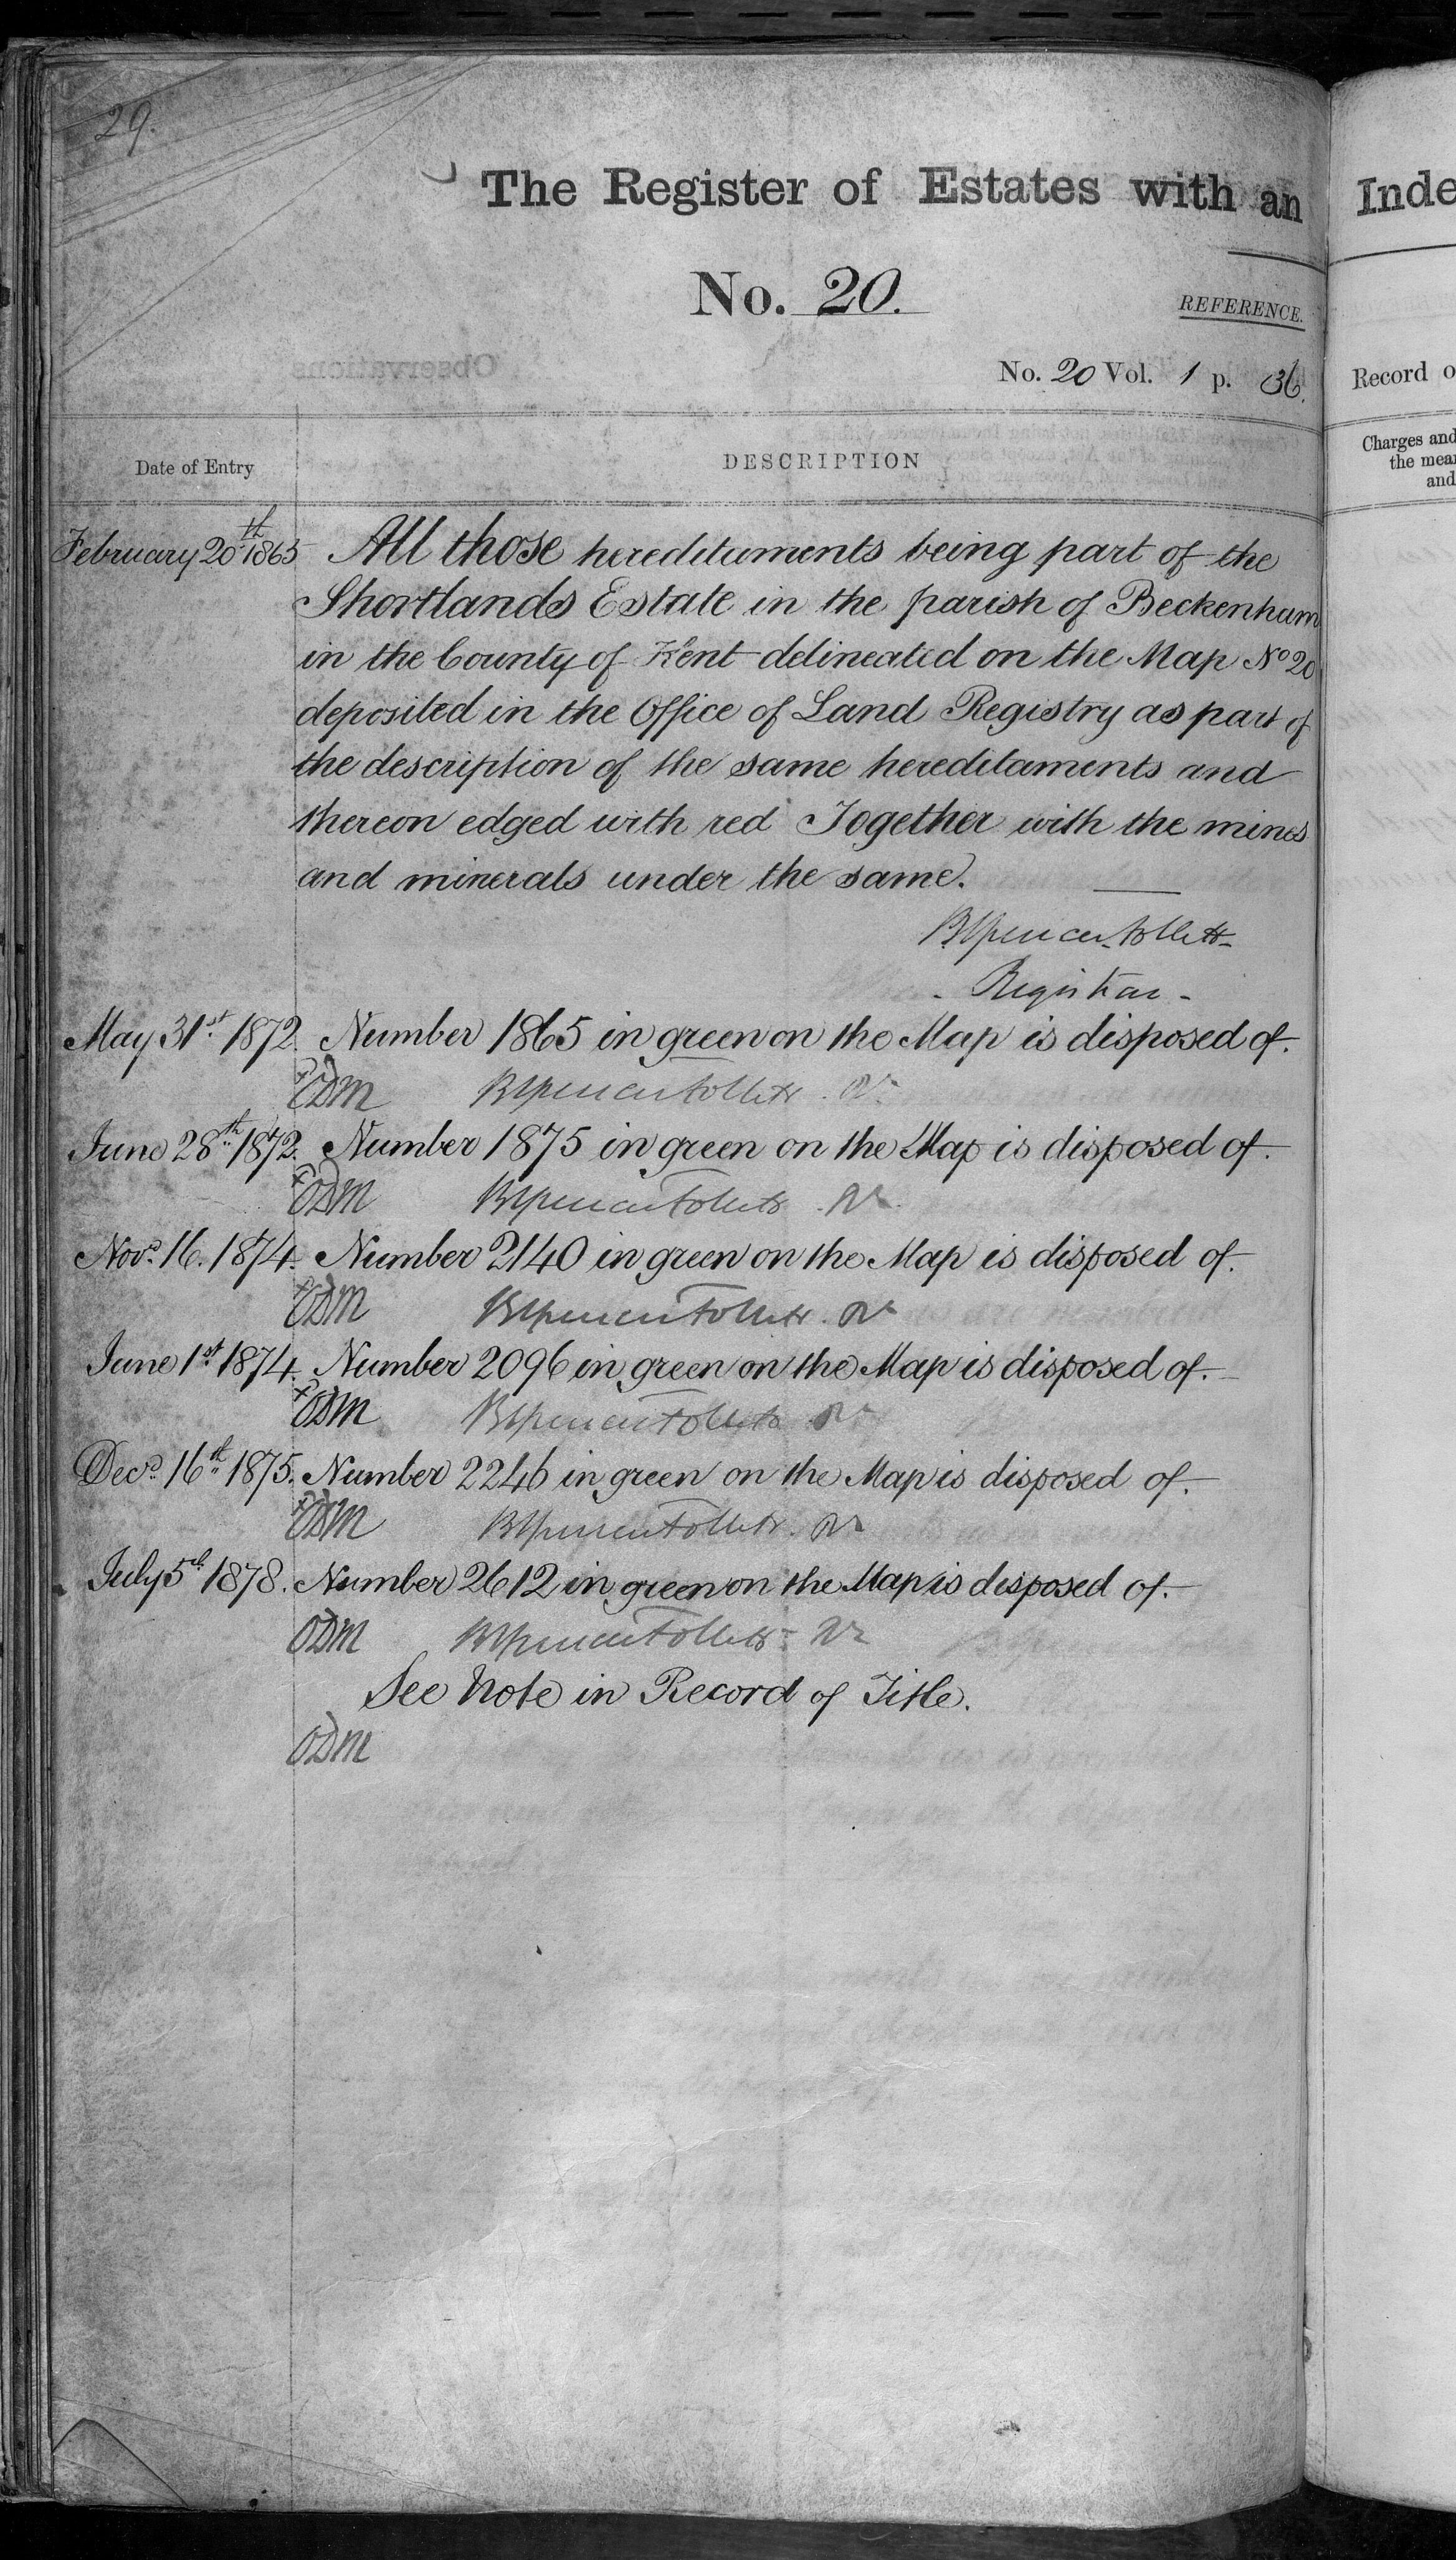 29.
The Register of Estates with an Inde
No. 20.
REFERENCE.
No. 20 Vol. 1 p. 36.
Record o
Date of Entry
DESCRIPTION
Charges and
the mea
and
February 20th 1865 All those hereditaments being part of the
Shortlands Estate in the parish of Beckenham
in the County of Kent delineated on the Map No 20
deposited in the Office of Land Registry as part of
the description of the same hereditaments and
thereon edged with red Together with the mines
and minerals under the same.
BSpencer Follett
Registrar
May 31st 1872. Number 1865 in green on the Map is disposed of.
ODM BSpencer Follett. Rr
June 28th 1872. Number 1875 in green on the Map is disposed of.
ODM BSpencer Follett. Rr
Novr. 16. 1874. Number 2140 in green on the Map is disposed of.
ODM BSpencer Follett. Rr
June 1st 1874. Number 2096 in green on the Map is disposed of.
ODM BSpencer Follett Rr
Decr. 16th 1875. Number 2246 in green on the Map is disposed of.
ODM BSpencer Follett. Rr
July 5th 1878. Number 2612 in green on the Map is disposed of.
ODM BSpencer Follett. Rr
See Note in Record of Title.
ODM